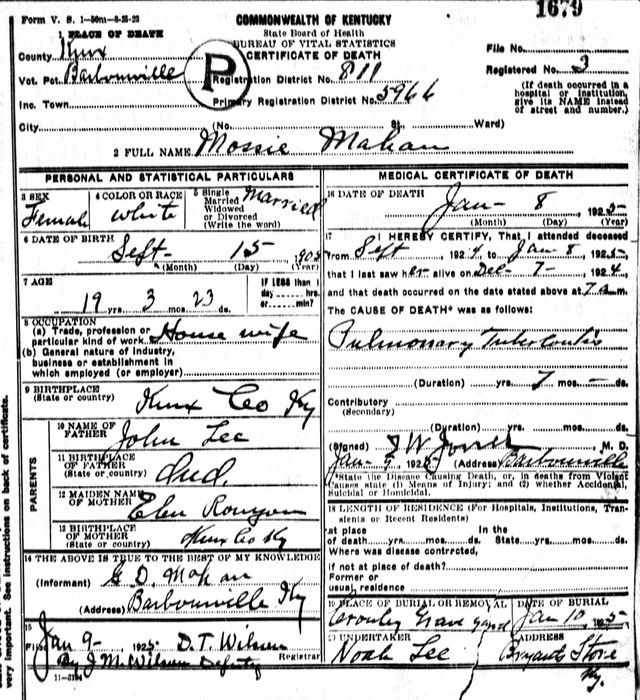 Form V. S. 1—50m—8-25-23
1679
COMMONWEALTH OF KENTUCKY
State Board of Health
BUREAU OF VITAL STATISTICS
CERTIFICATE OF DEATH
1 PLACE OF DEATH
County Knox
Vot. Pct. Barbourville
Inc. Town
City
P
Registration District No. 811
Primary Registration District No. 5966
(No. St. Ward)
File No.
Registered No. 3
(If death occurred in a
hospital or institution,
give its NAME instead
of street and number.)
2 FULL NAME Mossie Mahan
PERSONAL AND STATISTICAL PARTICULARS
3 SEX
Female
4 COLOR OR RACE
White
5 Single
Married
Widowed
or Divorced
(Write the word)
Married
6 DATE OF BIRTH
Sept- 15 1905
(Month) (Day) (Year)
7 AGE
19 yrs. 3 mos. 23 ds.
IF LESS than 1
day hrs.
or min?
8 OCCUPATION
(a) Trade, profession or
particular kind of work House wife
(b) General nature of industry,
business or establishment in
which employed (or employer)
9 BIRTHPLACE
(State or country) Knox Co Ky
PARENTS
10 NAME OF
FATHER John Lee
11 BIRTHPLACE
OF FATHER
(State or country)
12 MAIDEN NAME
OF MOTHER
13 BIRTHPLACE
OF MOTHER
(State or country) Knox Co Ky
14 THE ABOVE IS TRUE TO THE BEST OF MY KNOWLEDGE
(Informant) G D Mahan
(Address) Barbourville Ky
15
Filed Jan 9- 1925 D. T. Wilson
Registrar
By J M Wilson Deputy
MEDICAL CERTIFICATE OF DEATH
16 DATE OF DEATH
Jan- 8 1925
(Month) (Day) (Year)
17 I HEREBY CERTIFY, That I attended deceased
from Sept 1924, to Jan 8, 1925
that I last saw her alive on Dec- 7- 1924
and that death occurred on the date stated above at 7 a.m.
The CAUSE OF DEATH* was as follows:
Pulmonary Tuberculosis
(Duration) yrs. 7 mos. — ds.
Contributory
(Secondary)
(Duration) yrs. mos. ds.
(Signed) J W Jones M. D.
Jan- 9 1925 (Address) Barbourville
*State the Disease Causing Death, or, in deaths from Violent
Causes state (1) Means of Injury; and (2) whether Accidental,
Suicidal or Homicidal.
18 LENGTH OF RESIDENCE (For Hospitals, Institutions, Tran-
sients or Recent Residents)
at place In the
of death yrs. mos. ds. State yrs. mos. ds.
Where was disease contrcted,
if not at place of death?
Former or
usual residence
19 PLACE OF BURIAL OR REMOVAL
Grave yard
DATE OF BURIAL
Jan 10 1925
20 UNDERTAKER
Noah Lee
ADDRESS
Bryants Store
Ky.
very important. See instructions on back of certificate.